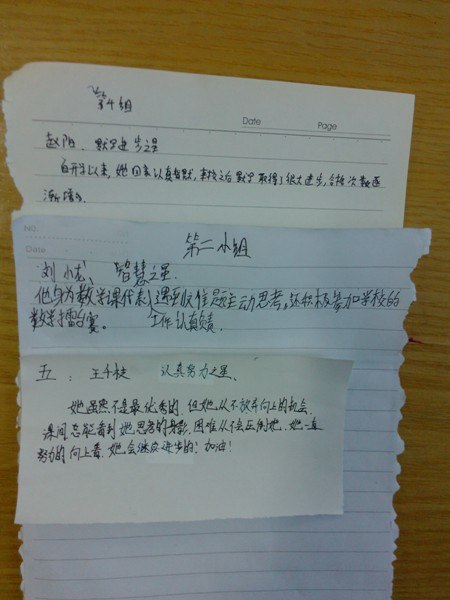 第4组
Date Page
赵阳、默写进步之星
自开学以来,她回家认真自默,来校之后默写取得了很大进步,合格次数逐
渐增多。
NO.
Date
第二小组
刘小龙、智慧之星.
他身为数学课代表,遇到难题主动思考,还积极参加学校的
数学擂台赛。 工作认真负责.
五: 王千 认真努力之星、
她虽然不是最优秀的,但她从不放弃向上的机会.
课间总能看到她思考的身影.困难从不会压倒她.她一直
努力的向上着.她会继续进步的!加油!